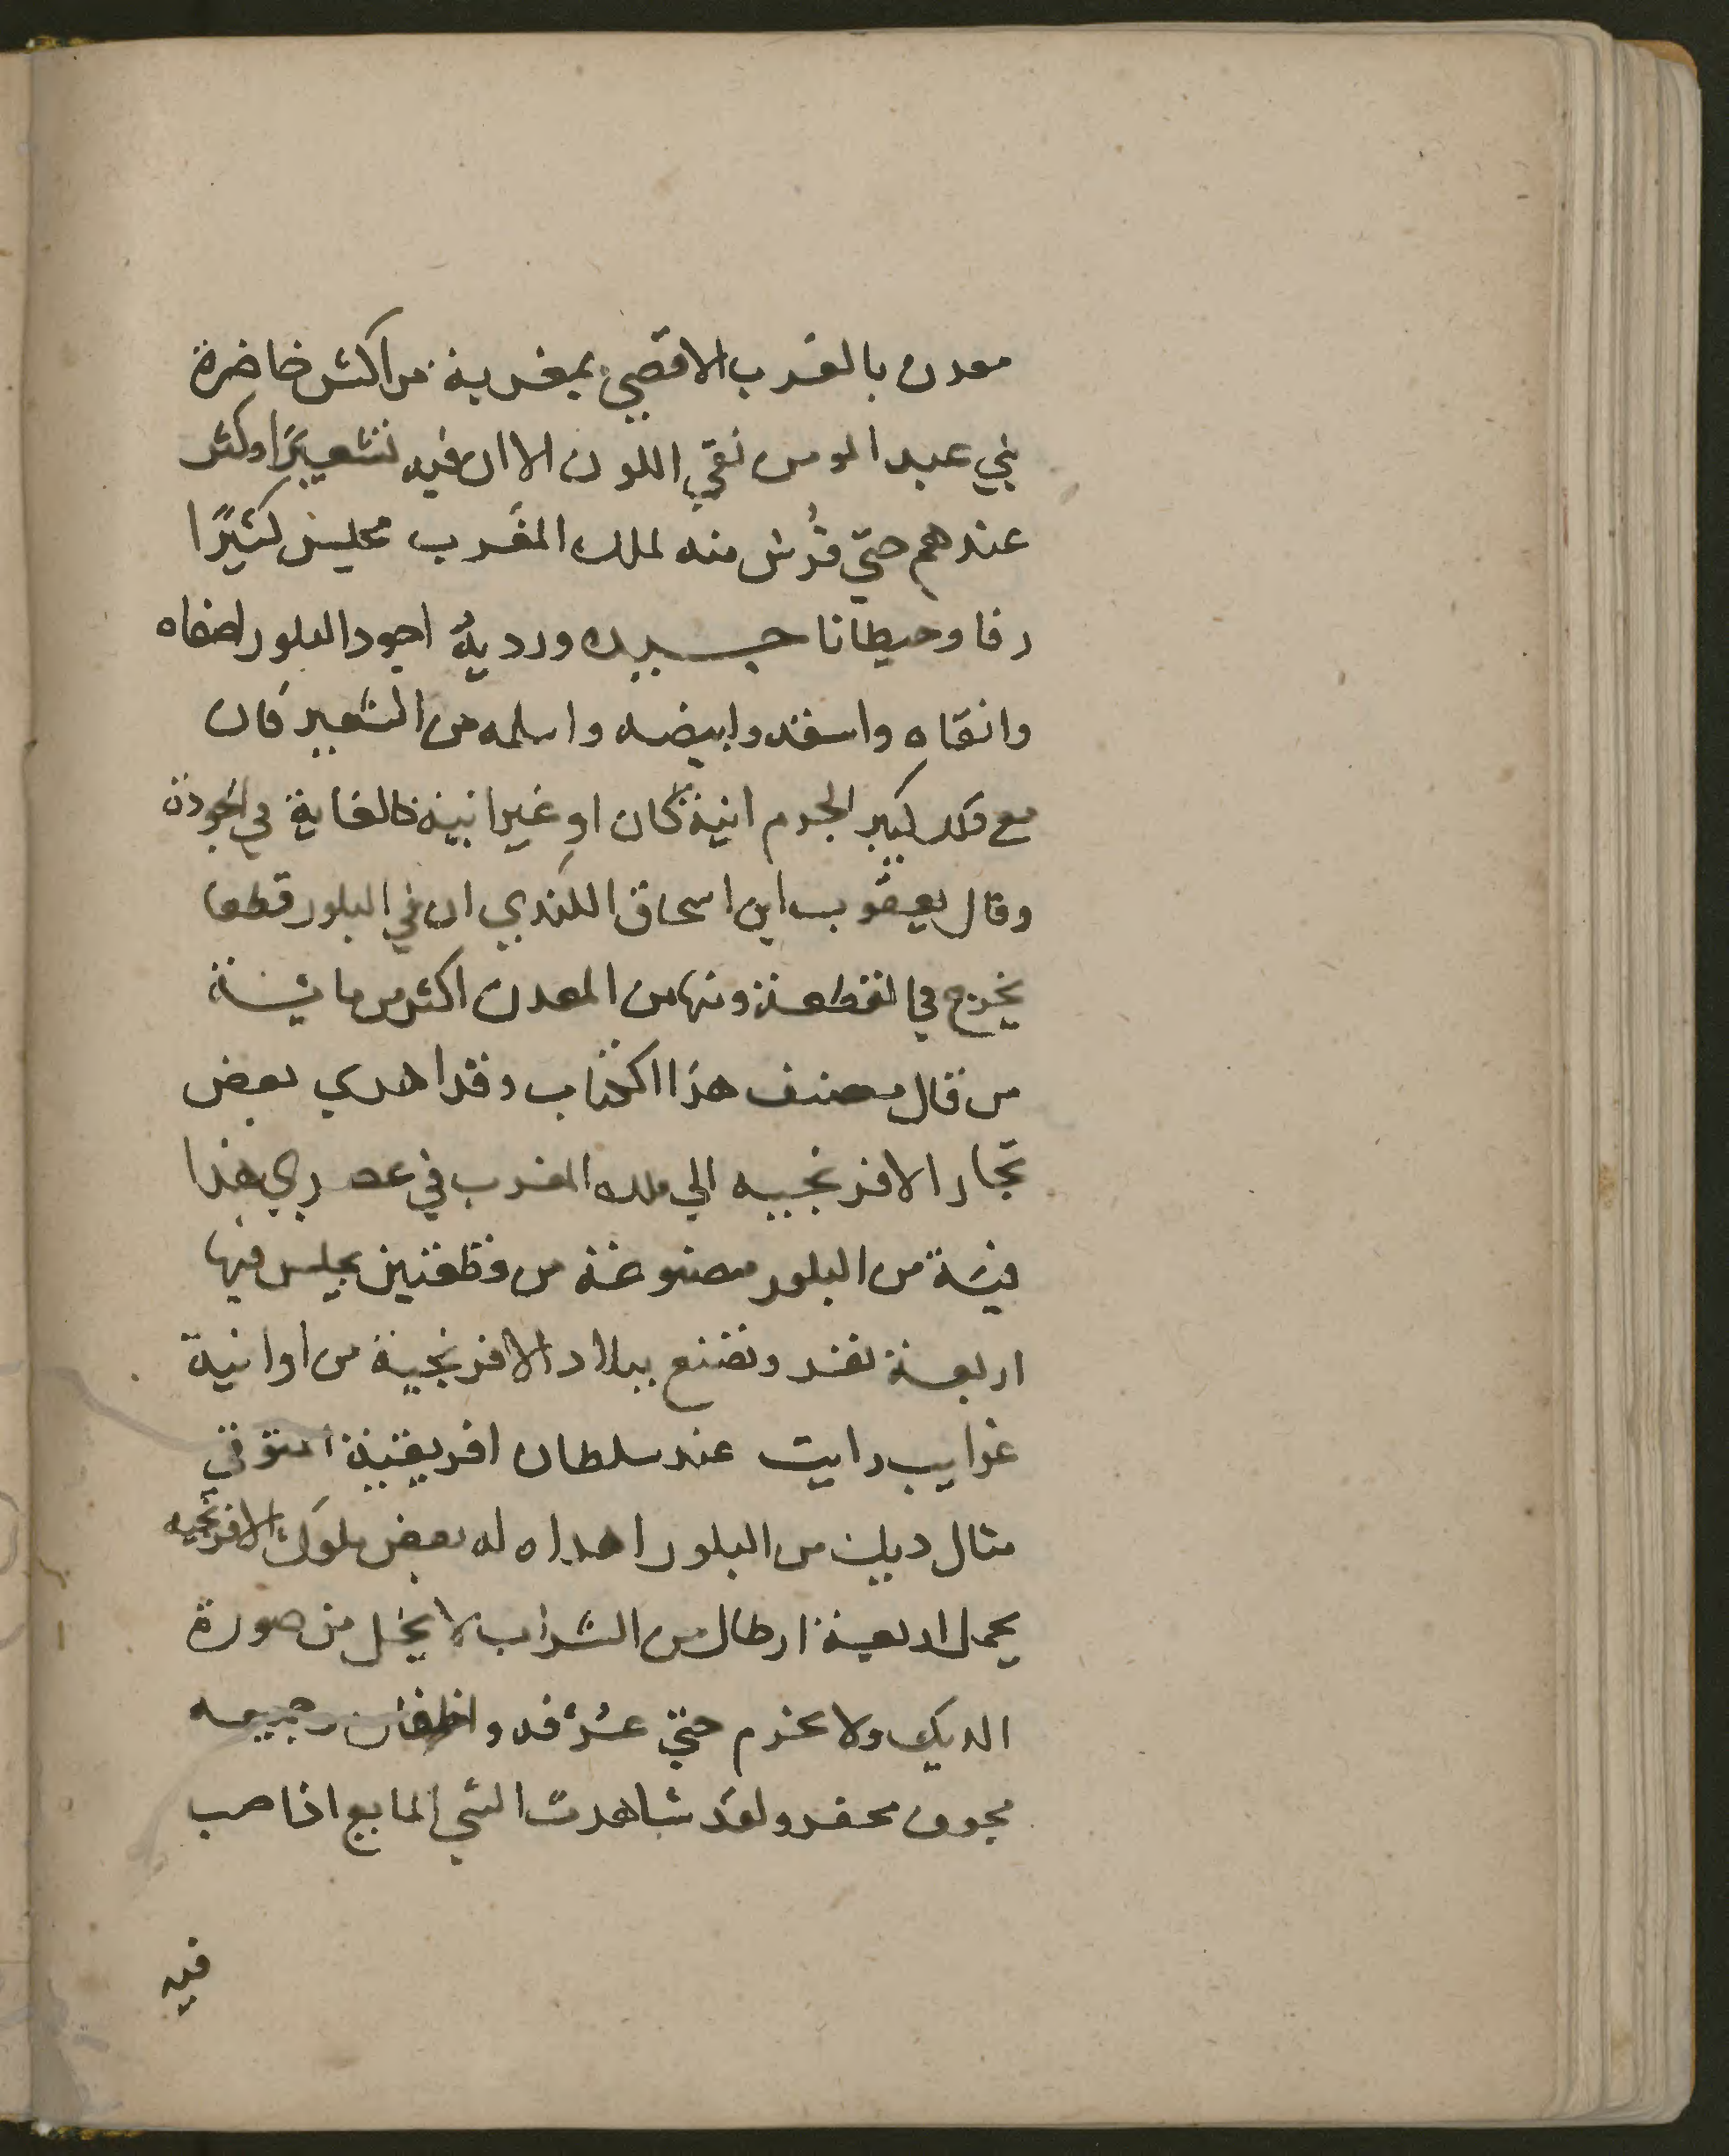 معدن بالغرب الاقصي بمغربة مراكش خاضرة
بني عبد المومن نقي اللون الا ان فيه تشعيرًا وكثر
عندهم حتي فُرش منه لملك المغرب مجلس كثيرًا
رفا وحيطانا جيده ورديهٌ اجود البلور اصفاه
وانقاه واسفه وابيضه واسلمه من الشعير فان
مع ذلك كبير الجرم انية كان او غير انية فالغاية في الجودة
وقال يعقوب ابن اسحاق الكندي ان في البلور قطعا
يخرج في القطعة منها من المعدن اكثر من مائة
من قال مصنف هذا الكتاب وقد اهدي بعض
تجار الافرنجيه الي ملك المغرب في عصري هذا
فيئة من البلور مصنوعة من قطعتين يجلس فيها
اربعة نفر وتصنع ببلاد الافرنجية من اوانية
غرايب رايت عند سلطان افريقية
مثال ديك من البلور اهداه له بعض ملوك الافرنجيه
يحمل اربعة ارطال من الشراب لا يخل من صورة
الديك ولا يخرم حتي عرفه واظفار رجيعه
مجوف محفر ولقد شاهدت الشي المايع اذا صب
فيه